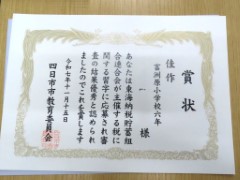 賞状
佳作
富洲原小学校六年
一 様
あなたは東海納税貯蓄組
合連合会が主催する税に
関する習字に応募され審
査の結果優秀と認められ
ましたのでこれを賞します
令和七年十一月十五日
四日市市教育委員会